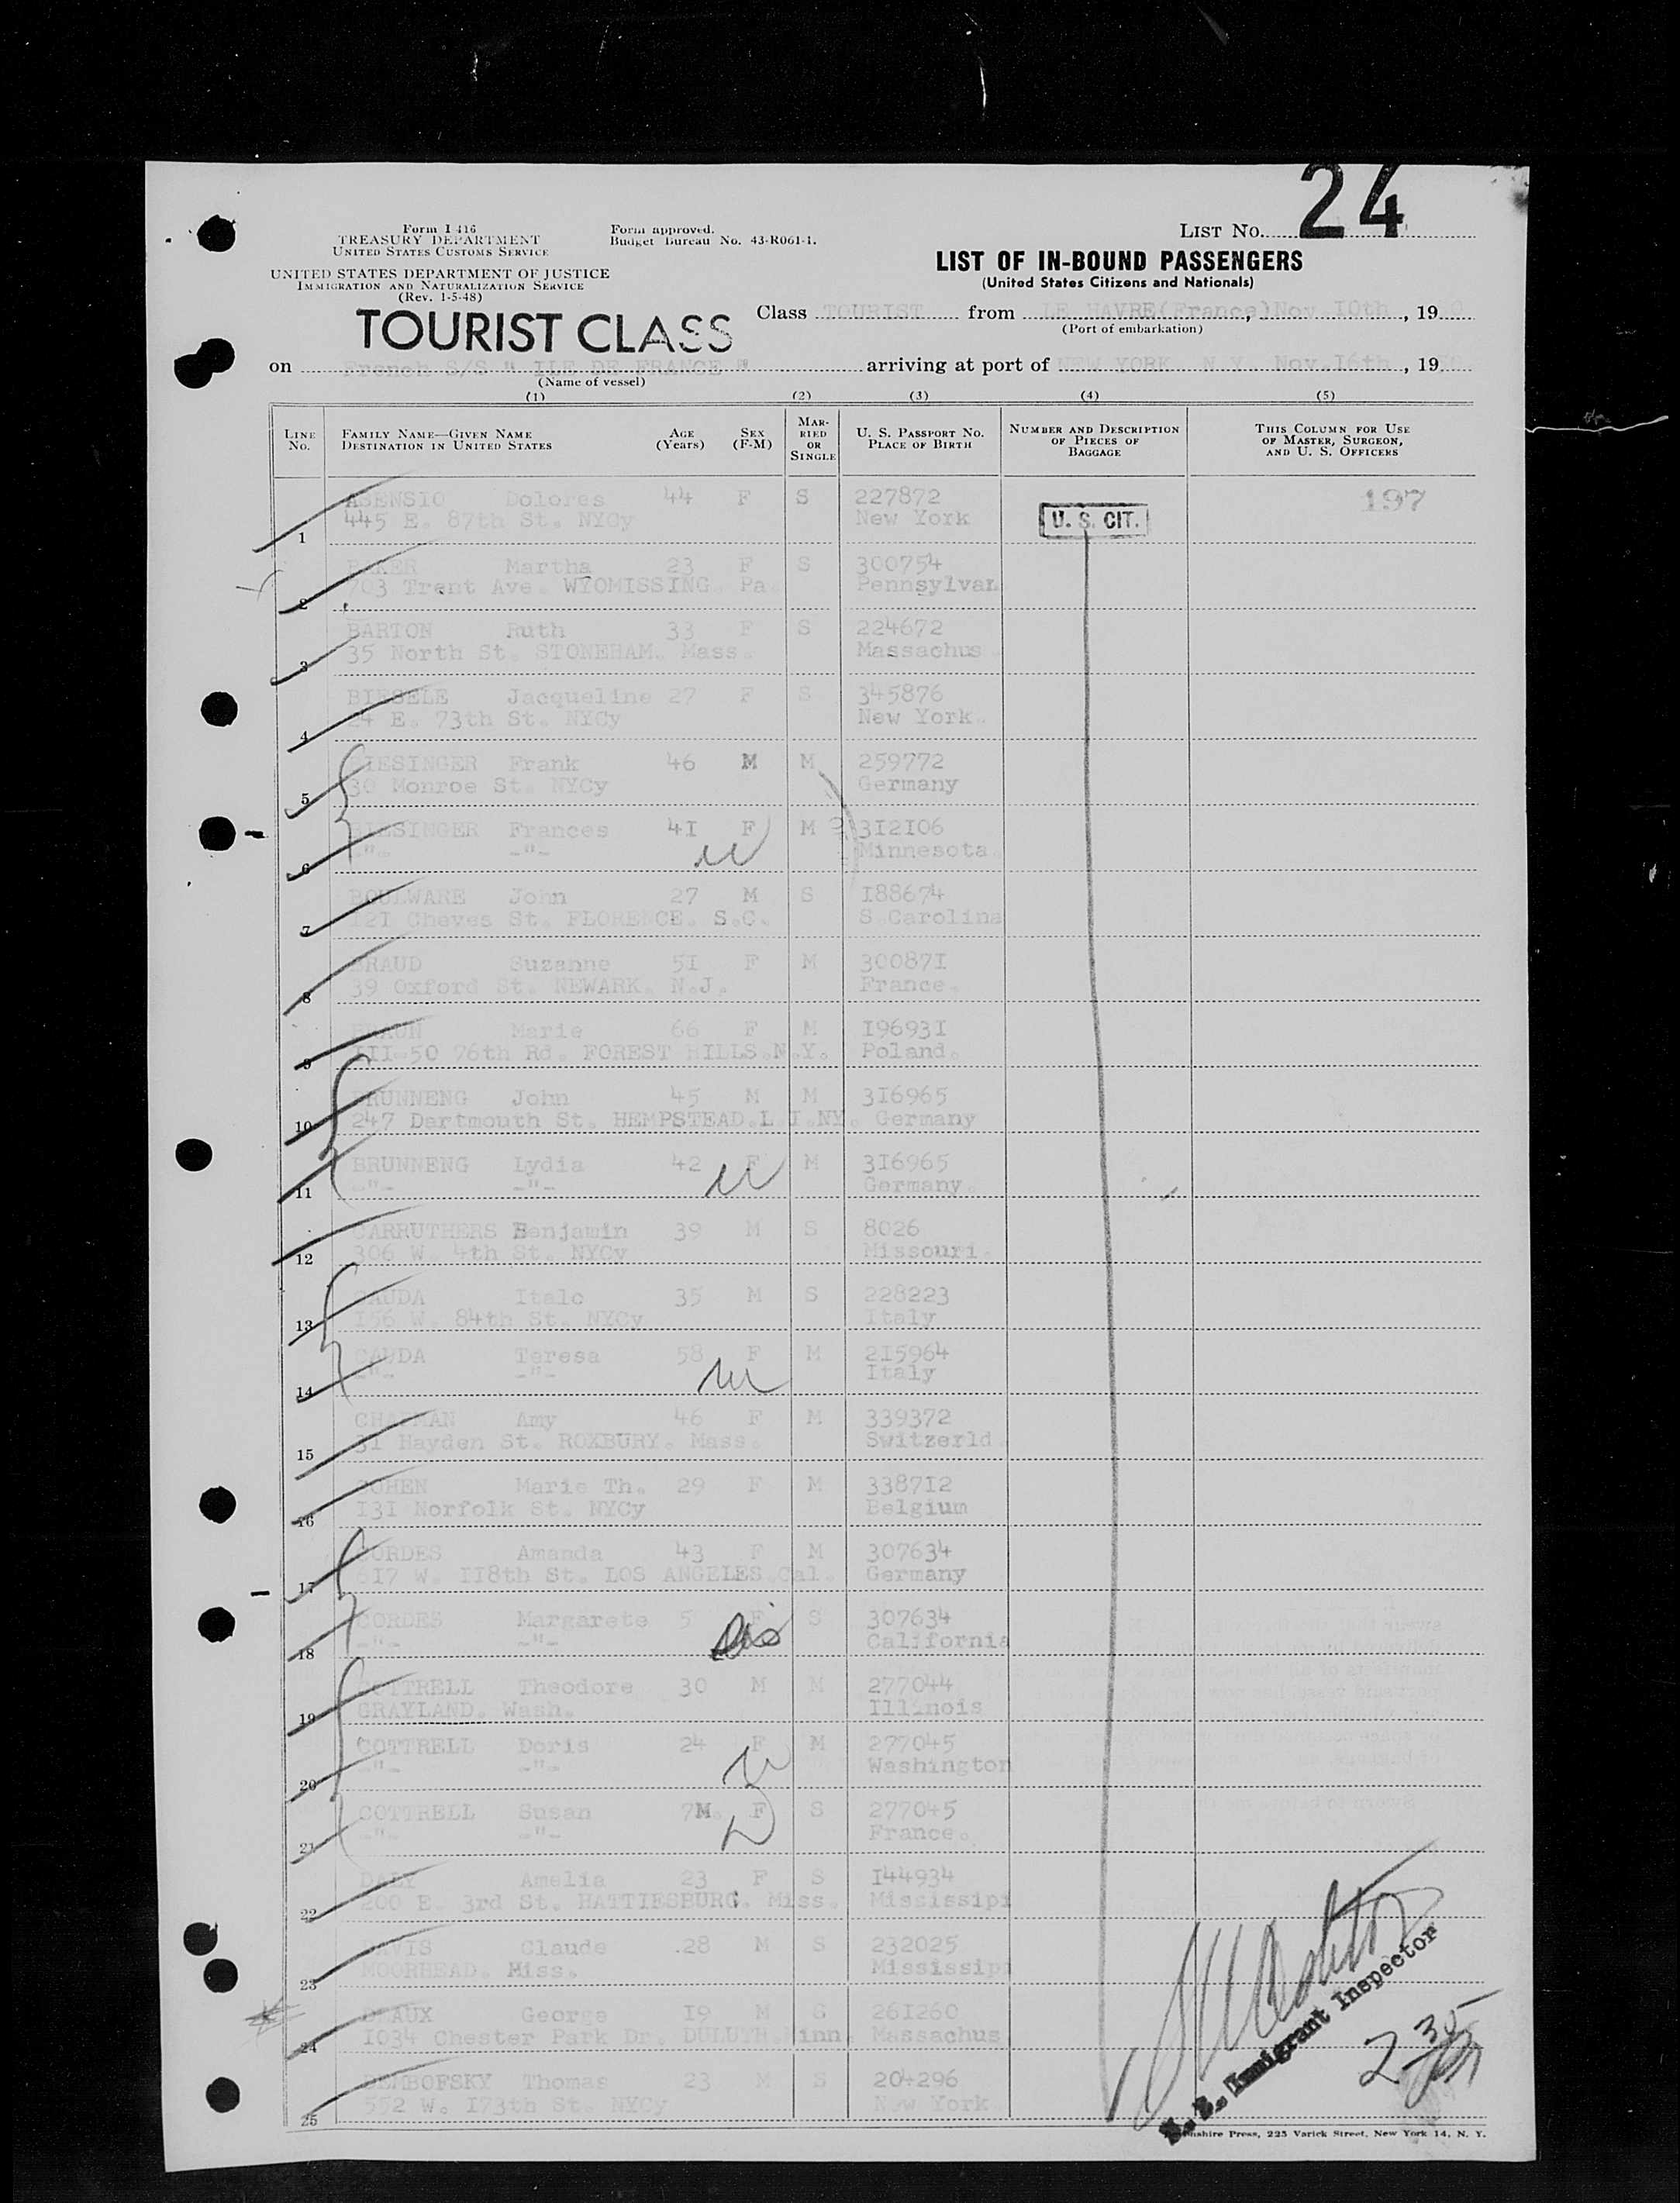 24
Form I-416
TREASURY DEPARTMENT
UNITED STATES CUSTOMS SERVICE
Form approved.
Budget Bureau No. 43-R061-1.
LIST NO.
UNITED STATES DEPARTMENT OF JUSTICE
IMMIGRATION AND NATURALIZATION SERVICE
(Rev. 1-5-48)
LIST OF IN-BOUND PASSENGERS
(United States Citizens and Nationals)
TOURIST CLASS
Class TOURIST from LE HAVRE(France), Nov 10th, 19
(Port of embarkation)
on French S/S " ILE DE FRANCE " arriving at port of NEW YORK N.Y. Nov.16th, 19
(Name of vessel)
(1) (2) (3) (4) (5)
LINE NO. FAMILY NAME—GIVEN NAME DESTINATION IN UNITED STATES AGE (Years) SEX (F-M) MARRIED OR SINGLE U. S. PASSPORT NO. PLACE OF BIRTH NUMBER AND DESCRIPTION OF PIECES OF BAGGAGE THIS COLUMN FOR USE OF MASTER, SURGEON, AND U. S. OFFICERS
ASENSIO Dolores 44 F S 227872 197
1 445 E. 87th St. NYCy New York U. S. CIT.
BAKER Martha 23 F S 300754
2 703 Trent Ave. WYOMISSING. Pa. Pennsylvan
BARTON Ruth 33 F S 224672
3 35 North St. STONEHAM. Mass. Massachus
BIESELE Jacqueline 27 F S 345876
4 24 E. 73th St. NYCy New York.
BIESINGER Frank 46 M M 259772
5 30 Monroe St. NYCy Germany
BIESINGER Frances 4I F M 3I2I06
6 -"- -"- Minnesota
BOULWARE John 27 M S I88674
7 I2I Cheves St. FLORENCE. S.C. S.Carolina
BRAUD Suzanne 5I F M 30087I
8 39 Oxford St. NEWARK. N.J. France.
BRAUN Marie 66 F M I9693I
9 III-50 76th Rd. FOREST HILLS.N.Y. Poland.
BRUNNENG John 45 M M 3I6965
10 247 Dartmouth St. HEMPSTEAD.L.I.NY. Germany
BRUNNENG Lydia 42 F M 3I6965
11 -"- -"- Germany.
CARRUTHERS Benjamin 39 M S 8026
12 306 W. 4th St. NYCy Missouri.
CAUDA Italo 35 M S 228223
13 I56 W. 84th St. NYCy Italy
CAUDA Teresa 58 F M 2I5964
14 -"- -"- Italy
CHAPMAN Amy 46 F M 339372
15 3I Hayden St. ROXBURY. Mass. Switzerld.
COHEN Marie Th. 29 F M 3387I2
16 I3I Norfolk St. NYCy Belgium
CORDES Amanda 43 F M 307634
17 6I7 W. II8th St. LOS ANGELES.Cal. Germany
CORDES Margarete 5 F S 307634
18 -"- -"- California
COTTRELL Theodore 30 M M 277044
19 GRAYLAND. Wash. Illinois
COTTRELL Doris 24 F M 277045
20 -"- -"- Washington
COTTRELL Susan 7M. F S 277045
21 -"- -"- France.
DALY Amelia 23 F S I44934
22 200 E. 3rd St. HATTIESBURG. Miss. Mississipi
DAVIS Claude 28 M S 232025
23 MOORHEAD. Miss. Mississipi
DEAUX George I9 M S 26I260
24 I034 Chester Park Dr. DULUTH.Minn. Massachus
DEMBOFSKY Thomas 23 M S 204296
25 552 W. I73th St. NYCy New York
Immigrant Inspector
Press, 225 Varick Street, New York 14, N. Y.